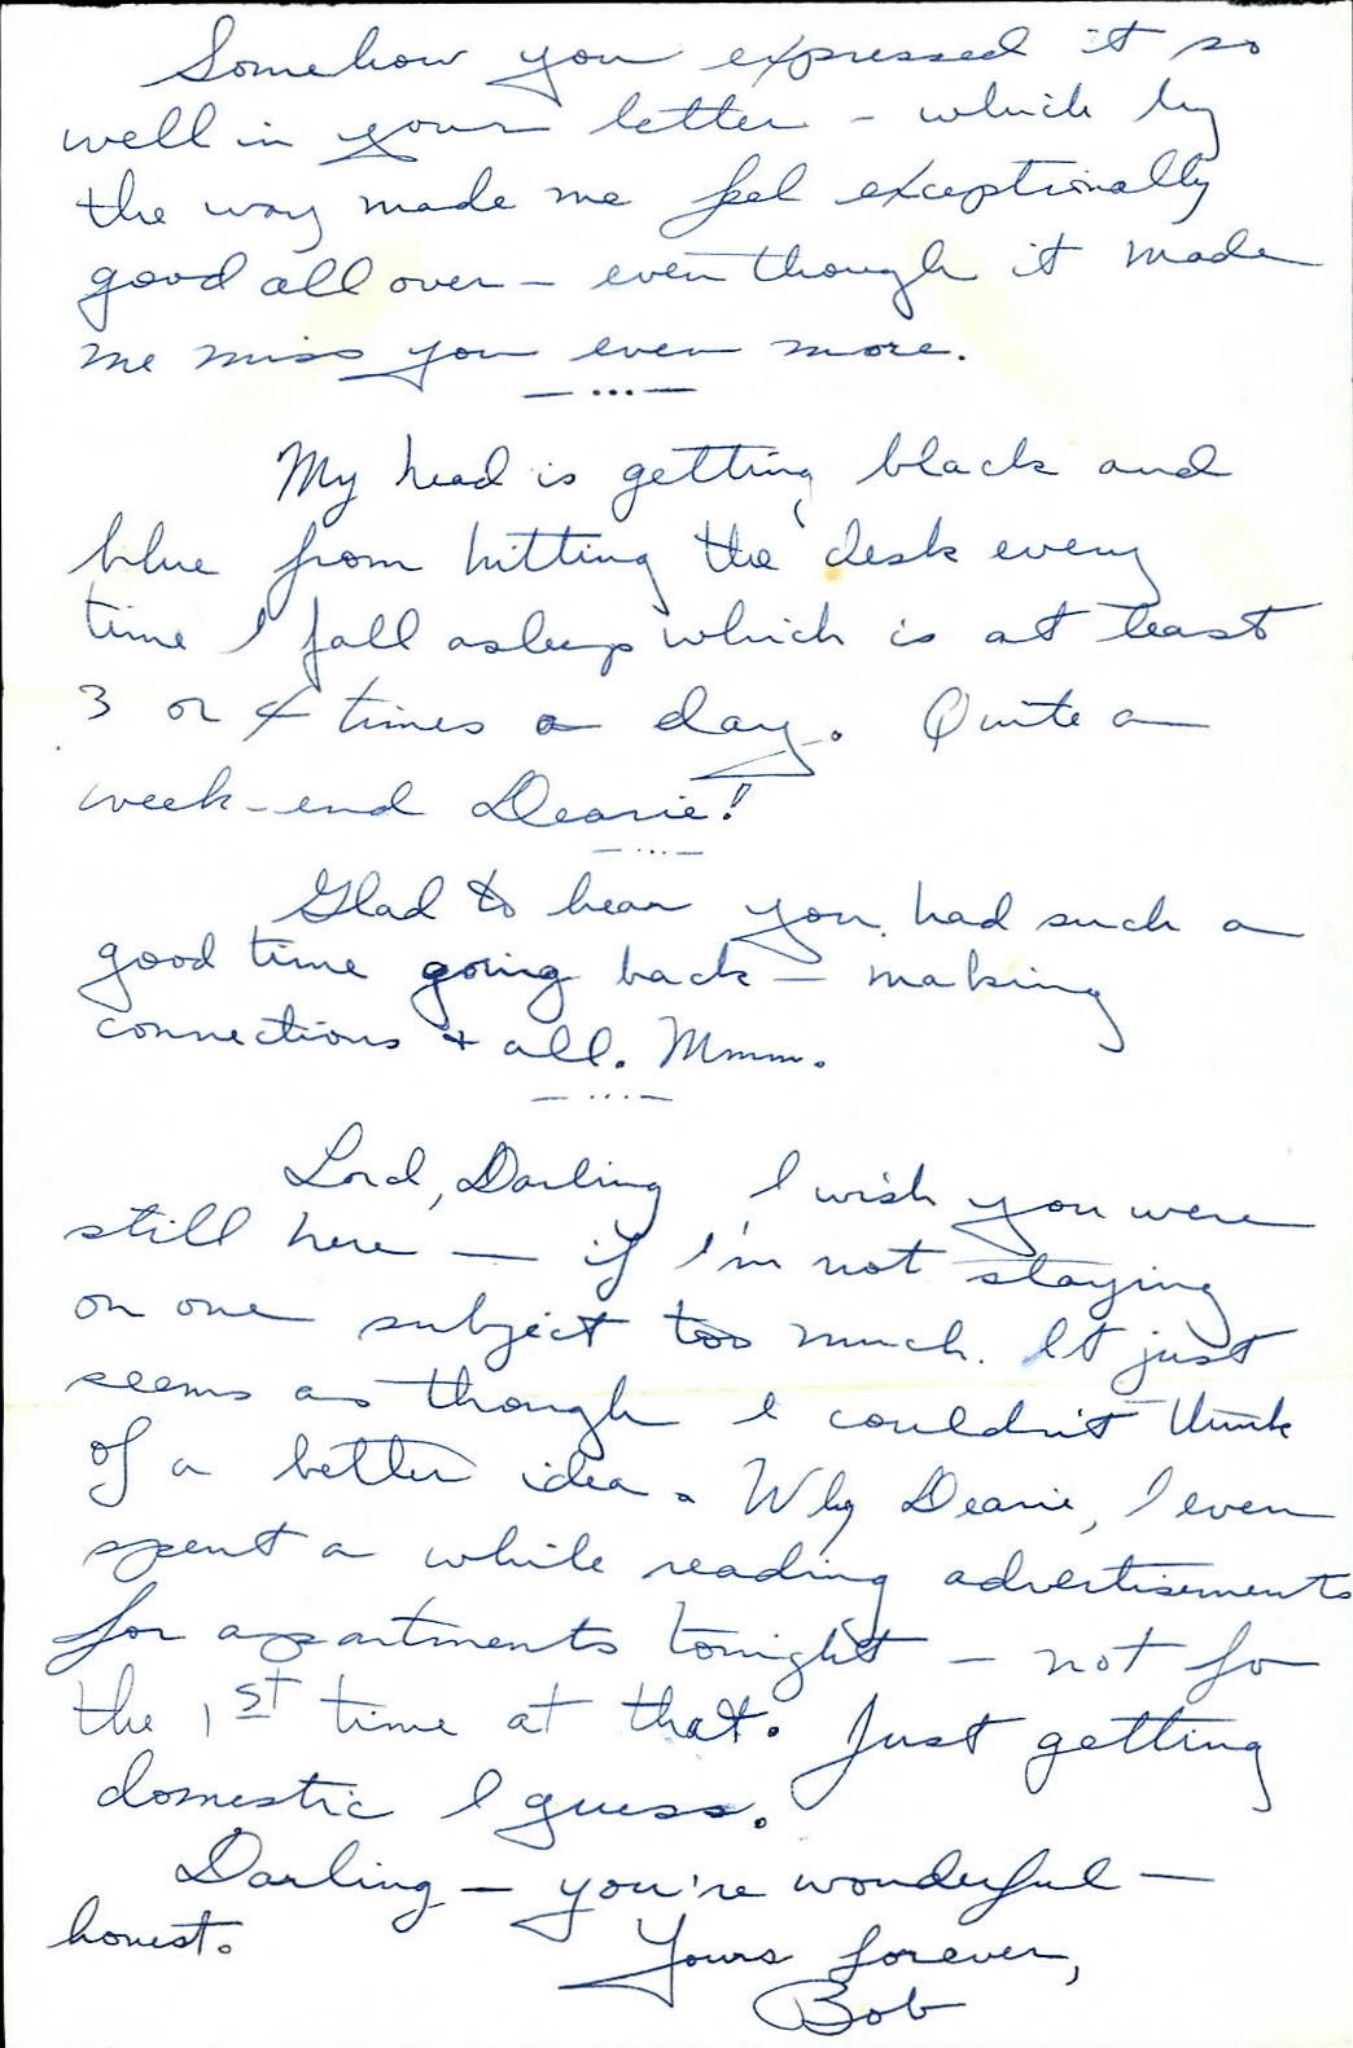 Somehow you expressed it so
well in your letter - which by
the way made me feel exceptionally
good all over - even though it made
me miss you even more.
— ... —
My head is getting black and
blue from hitting the desk every
time I fall asleep which is at least
3 or 4 times a day. Quite a
week-end Dearie!
— ... —
Glad to hear you had such a
good time going back — making
connections + all. Mmmm.
— .... —
Lord, Darling I wish you were
still here — if I'm not staying
on one subject too much. It just
seems as though I couldn't think
of a better idea. Why Dearie, I even
spent a while reading advertisements
for apartments tonight — not for
the 1st time at that. Just getting
domestic I guess.
Darling — you're wonderful —
honest.
Yours forever,
Bob